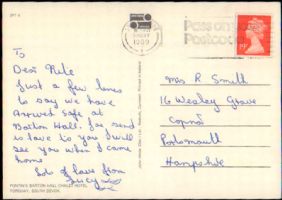 SP7 6
1989
Pass on
Postcode
To
Dear Nile
Just a few lines
to say we have
Arrived Safe at
Barton Hall. Joe send
is love to you I will
see you when I come
home
Lots of love from
Lucy
PONTIN'S BARTON HALL CHALET HOTEL
TORQUAY, SOUTH DEVON.
Mrs R Smith
16 Wesley Grove
Copnor
Portsmouth
Hampshire